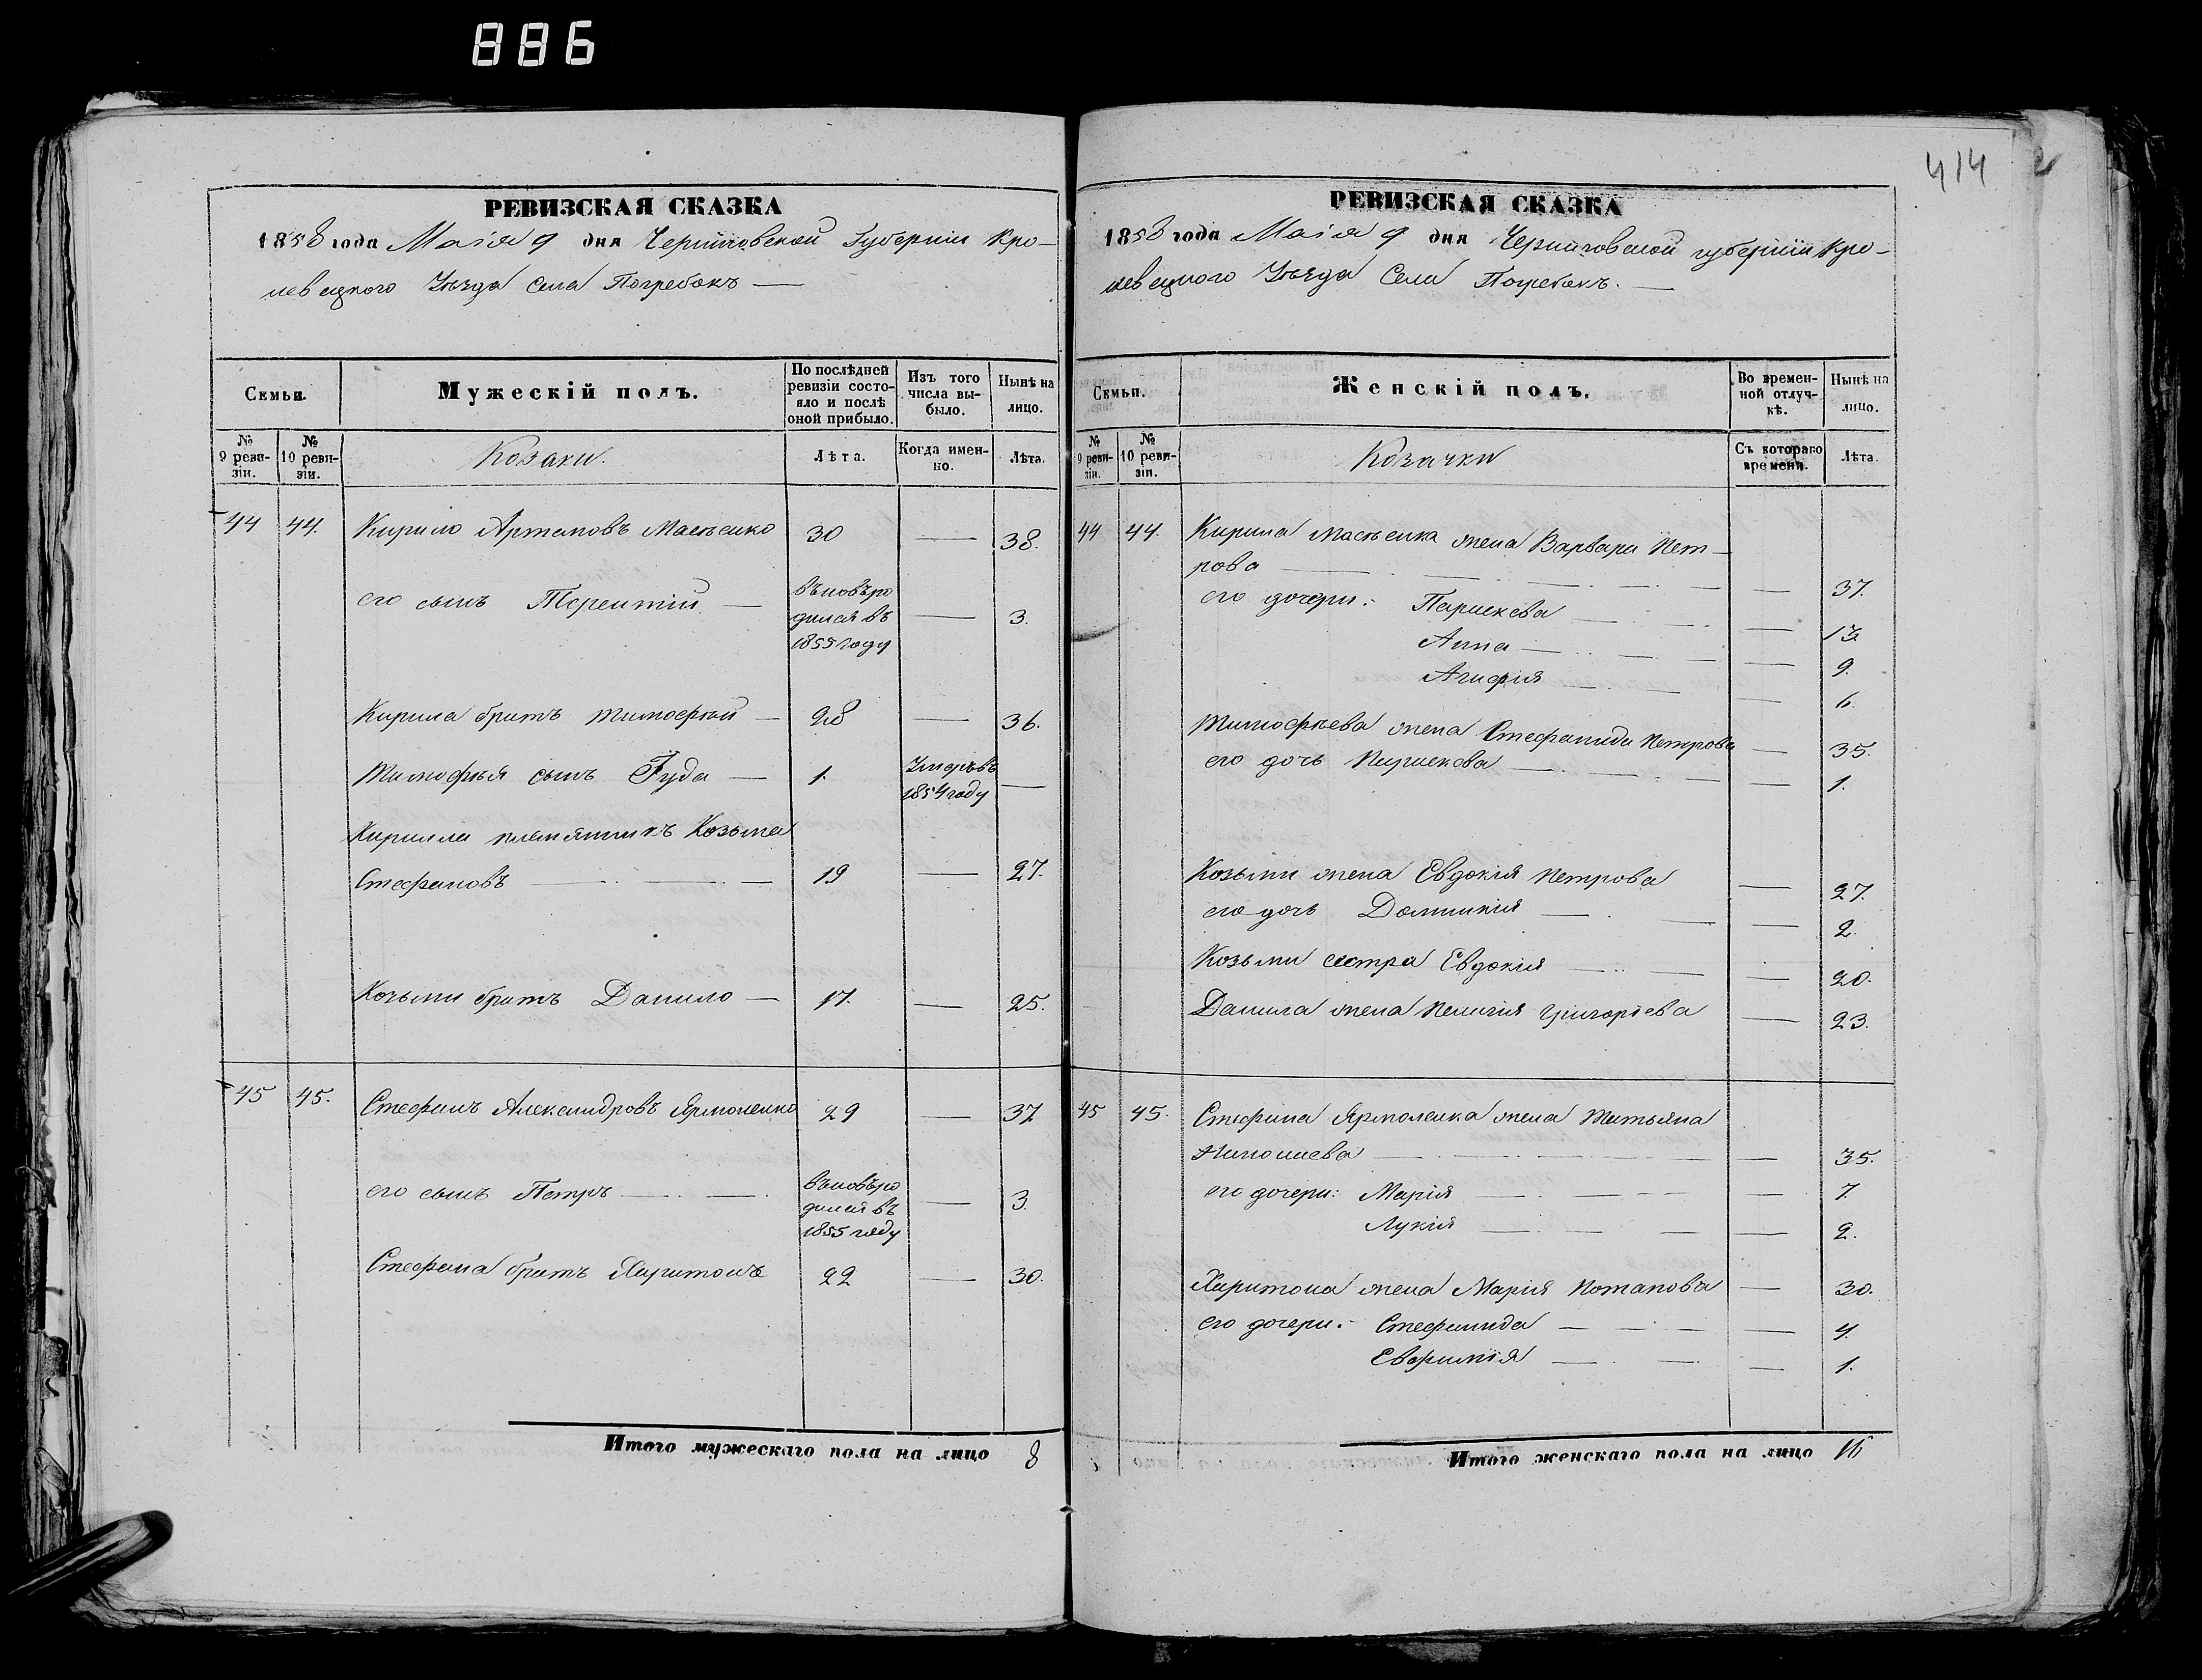 886
414
РЕВИЗСКАЯ СКАЗКА
1858 года Маія 9 дня Черниговской Губерніи Кро-
левецкого Уѣзда Села Погребокъ —
Семьи.
Мужескій полъ.
По послѣдней ревизіи состояло и послѣ оной прибыло.
Изъ того числа выбыло.
Нынѣ на лицо.
№ 9 ревизіи.
№ 10 ревизіи.
Козаки.
Лѣта.
Когда именно.
Лѣта.
44 44. Кирило Артемовъ 30 — 38.
его сынъ Терентій — вновь ро
дился въ — 3.
1855 году
Кирила братъ Тимофѣй — 28 — 36.
Тимофѣя сынъ Іуда — 1. Умеръ въ
1854 году —
Кирилла племянникъ Козьма
Стефановъ — 19 — 27.
Козьмы братъ Данило — 17. — 25.
45 45. Стефанъ Александровъ Ярмоленко 29 — 37
его сынъ Петръ — вновь ро
дился въ — 3.
1855 году
Стефана братъ Харитонъ 22 — 30.
Итого мужескаго пола на лицо 8
РЕВИЗСКАЯ СКАЗКА
1858 года Маія 9 дня Черниговской губерніи Кро-
левецкого Уѣзда Села Погребокъ. —
Семьи.
Женскій полъ.
Во временной отлучкѣ.
Нынѣ на лицо.
№ 9 ревизіи.
№ 10 ревизіи.
Козачки
Съ котораго времени.
Лѣта.
44 44. Кирила жена Варвара Пет-
рова — — 37.
его дочери: Параскева — — 13.
Анна — — 9.
Агафія — — 6.
Тимофѣева жена Стефанида Петрова — 35.
его дочь Параскева — — 1.
Козьмы жена Евдокія Петрова — 27.
его дочь Домникія — — 2.
Козьмы сестра Евдокія — — 20.
Данила жена Пелагія Григоріева — 23.
45 45. Стефана Ярмоленка жена Татьяна
— — 35.
его дочери: Марія — — 7.
Лукія — — 2.
Харитона жена Марія Потапова — 30.
его дочери: Стефанида — — 4.
Евфимія — — 1.
Итого женскаго пола на лицо 16